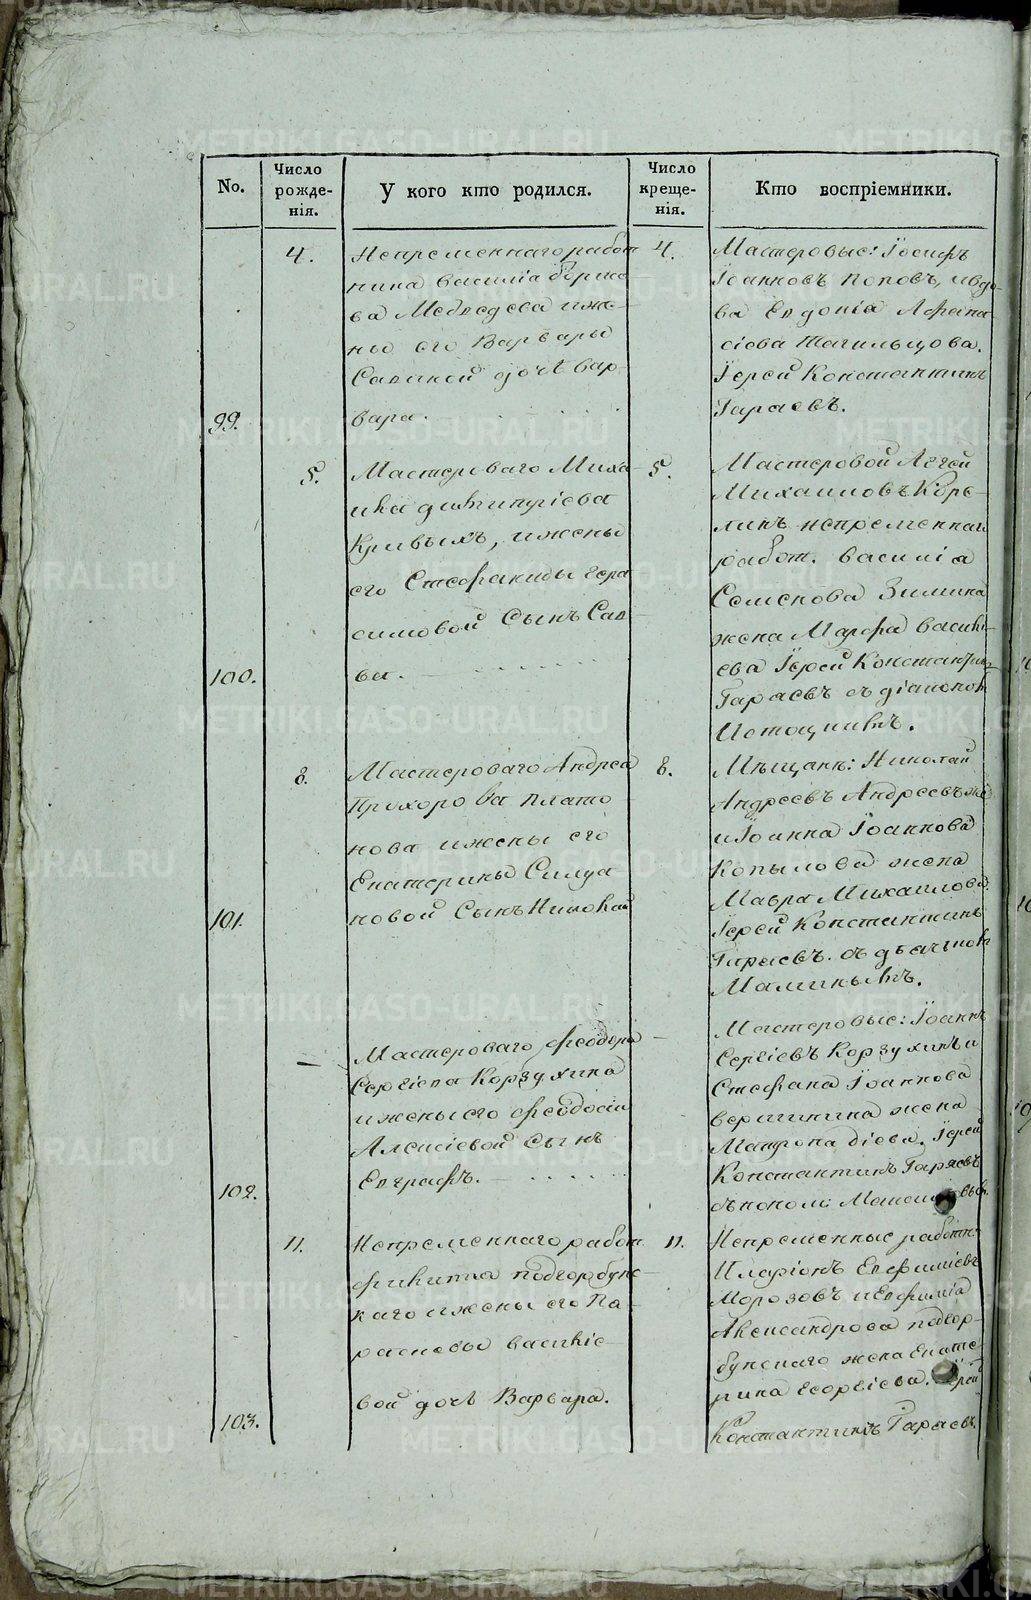 No.
Число рожде-нія.
У кого кто родился.
Число креще-нія.
Кто воспріемники.
99.
4.
Непременнаго работ
ника Василіа
ва Медведева и же-
ны его Варвары
Савиной дочь Вар
вара.
4.
Мастеровые: Іосифъ
Іоанновъ Поповъ, и вдо-
ва Евдокіа Афана
сіева Тагильцова.
Іерей Константинъ
Гаряевъ.
100.
5.
Мастероваго Миха
ила Димитріева
Кривыхъ, и жены
его Стефаниды Гера
симовой Сынъ Сав-
ва.
5.
Мастеровой
Михаиловъ
линъ непременнаго
работ. Василіа
Семенова Зимина
жена Марфа Василь-
ева Іерей Константинъ
Гаряевъ съ діакономъ
101.
8.
Мастероваго Андрея
Прохорова Плато
нова и жены его
Екатерины Силуа
новой Сынъ Николай
8.
Мѣщане: Николай
Андреевъ Андреевъ же
и Іоанна Іоаннова
Копылова жена
Мавра Михаилова.
Іерей Константинъ
Гаряевъ. съ дьячкомъ
Маминымъ.
102.
—
Мастероваго Феодора
Сергіева Корзухина
и жены его Феодосіи
Алексіевой сынъ
Евграфъ.
—
Мастеровые: Іоаннъ
Сергіевъ Корзухинъ и
Стефана Іоаннова
Вершинина жена
Іерей
Константинъ Гаряевъ
съ поном:
103.
11.
Непременнаго работ
Никиты Подгорбунс-
каго и жены его Па-
расковьи Василіе-
вой дочь Варвара.
11.
Непременные работн:
Иларіонъ Евфиміевъ
Морозовъ и Евфиміа
Александрова Подгор-
бунскаго жена Екате-
рина Георгіева. Іерей
Константинъ Гаряевъ.
METRIKI.GASO-URAL.RU